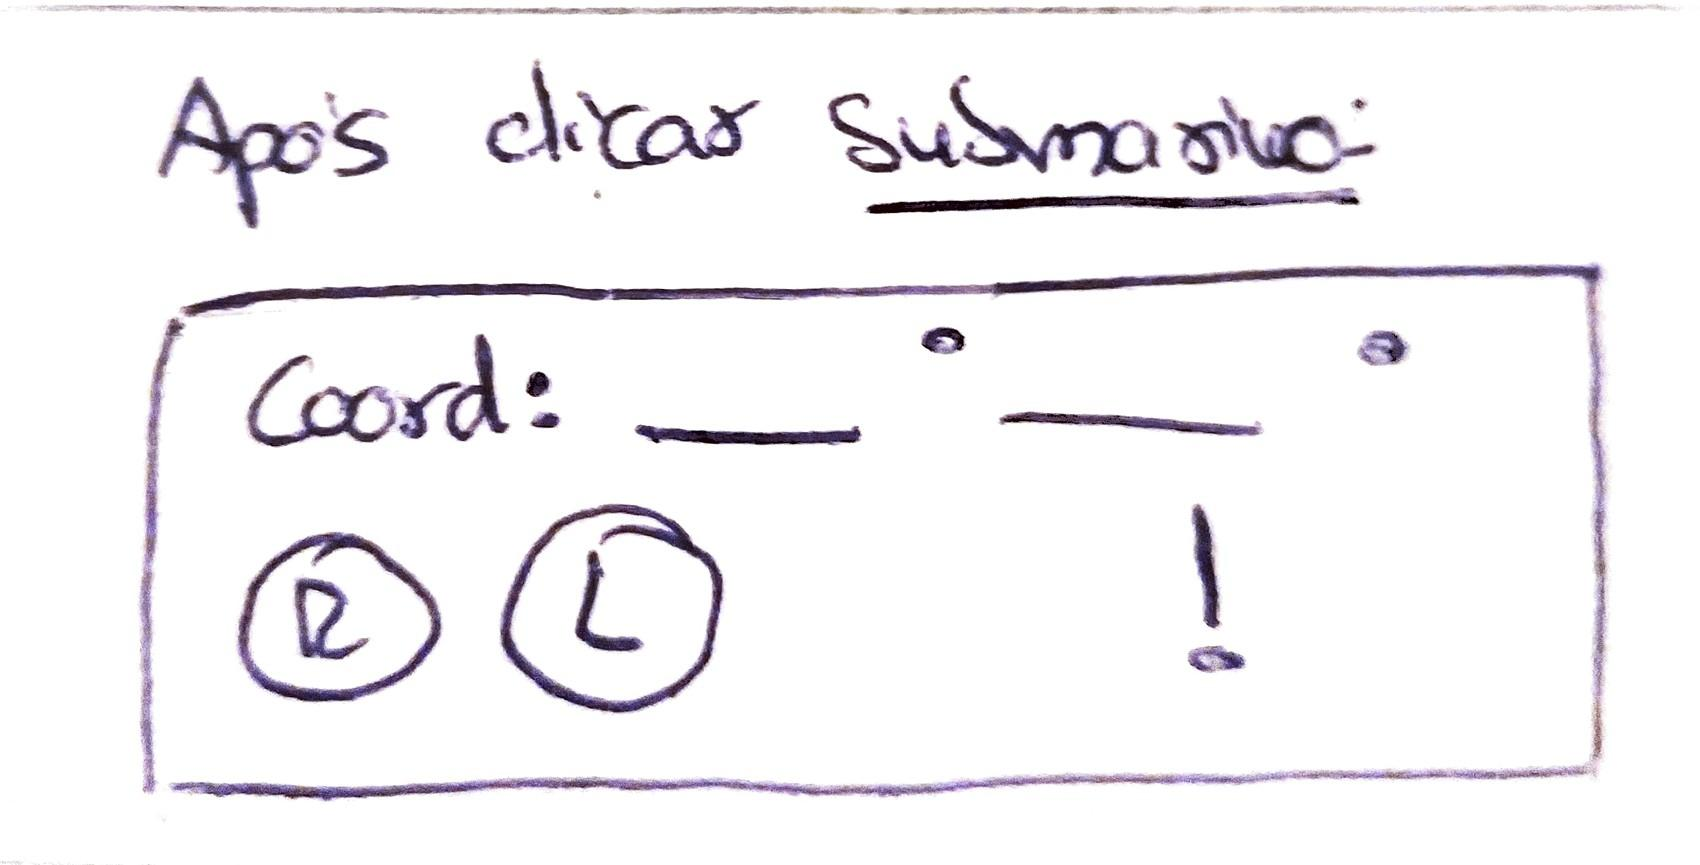 Após clicar Submarino:
Coord: ___ ° ___ °
R L !